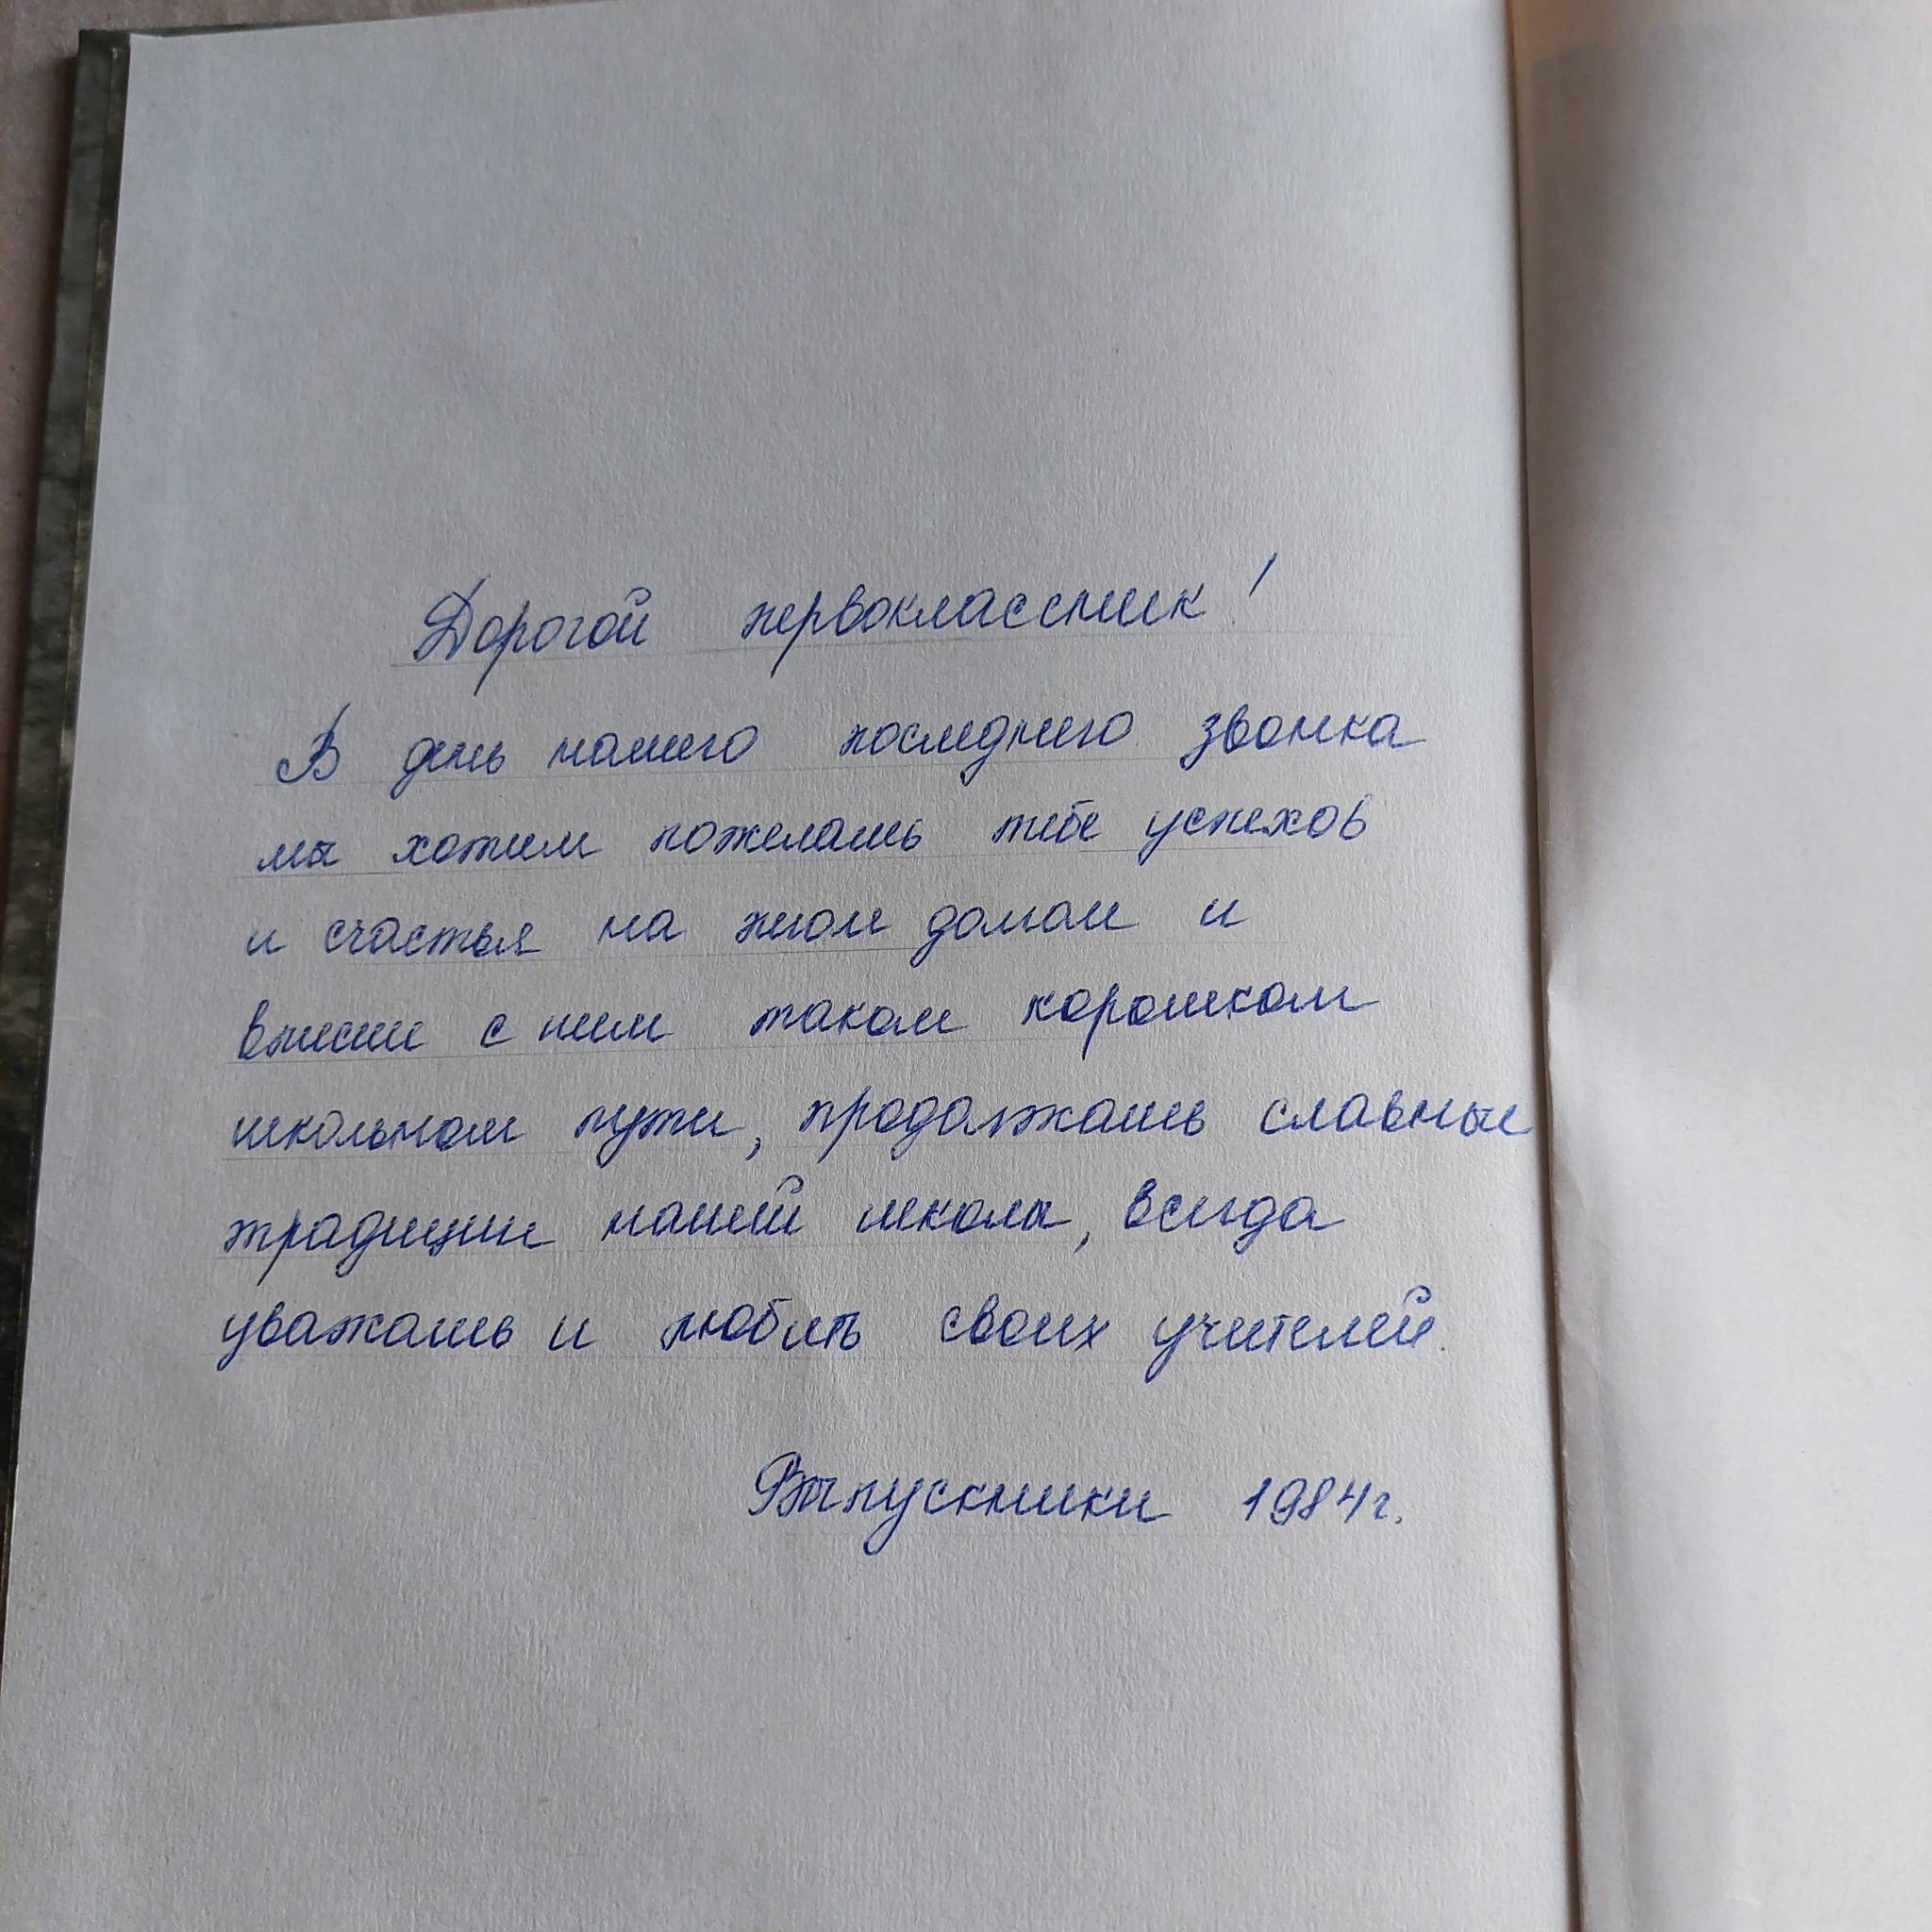 Дорогой первоклассник!
В день нашего последнего звонка
мы хотим пожелать тебе успехов
и счастья на этом долгом и
вместе с тем таком коротком
школьном пути, продолжать славные
традиции нашей школы, всегда
уважать и любить своих учителей.
Выпускники 1984г.